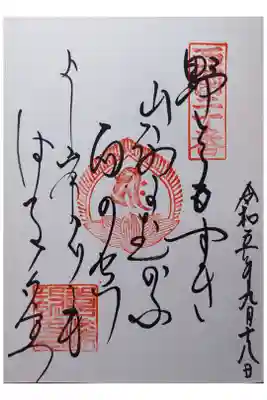 令和五年九月十八日
野をもすぎ
山路にむかふ
雨の空
よし峯よりも
はるゝ夕立